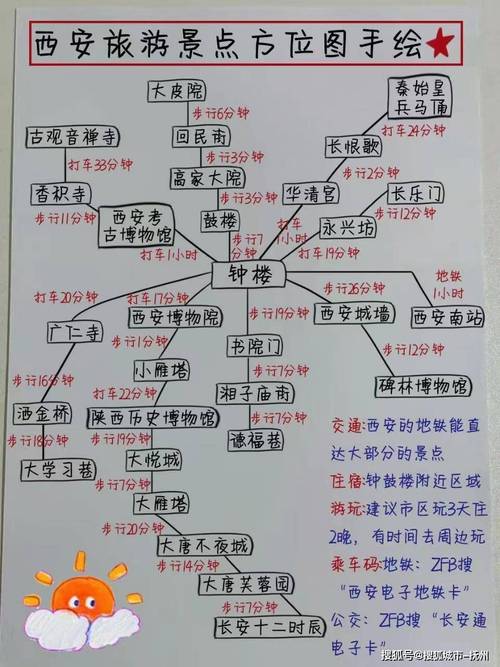 西安旅游景点方位图手绘★
大皮院
步行6分钟
回民街
步行3分钟
高家大院
步行3分钟
鼓楼
步行7分钟
秦始皇兵马俑
打车24分钟
长恨歌
步行2分钟
华清宫
打车1小时
古观音禅寺
打车33分钟
香积寺
步行11分钟
西安考古博物馆
打车1小时
长乐门
步行12分钟
永兴坊
打车19分钟
钟楼
地铁1小时
西安南站
步行26分钟
西安城墙
步行12分钟
碑林博物馆
打车20分钟
广仁寺
步行16分钟
洒金桥
步行18分钟
大学习巷
打车17分钟
西安博物院
步行1分钟
小雁塔
打车22分钟
陕西历史博物馆
步行19分钟
大悦城
步行7分钟
大雁塔
步行20分钟
大唐不夜城
步行14分钟
大唐芙蓉园
步行7分钟
长安十二时辰
步行19分钟
书院门
步行7分钟
湘子庙街
步行7分钟
德福巷
交通:西安的地铁能直
达大部分的景点
住宿:钟鼓楼附近区域
游玩:建议市区玩3天住
2晚，有时间去周边玩
乘车码:地铁：ZFB搜
“西安电子地铁卡”
公交：ZFB搜“长安通
电子卡”
搜狐号@搜狐城市-抚州